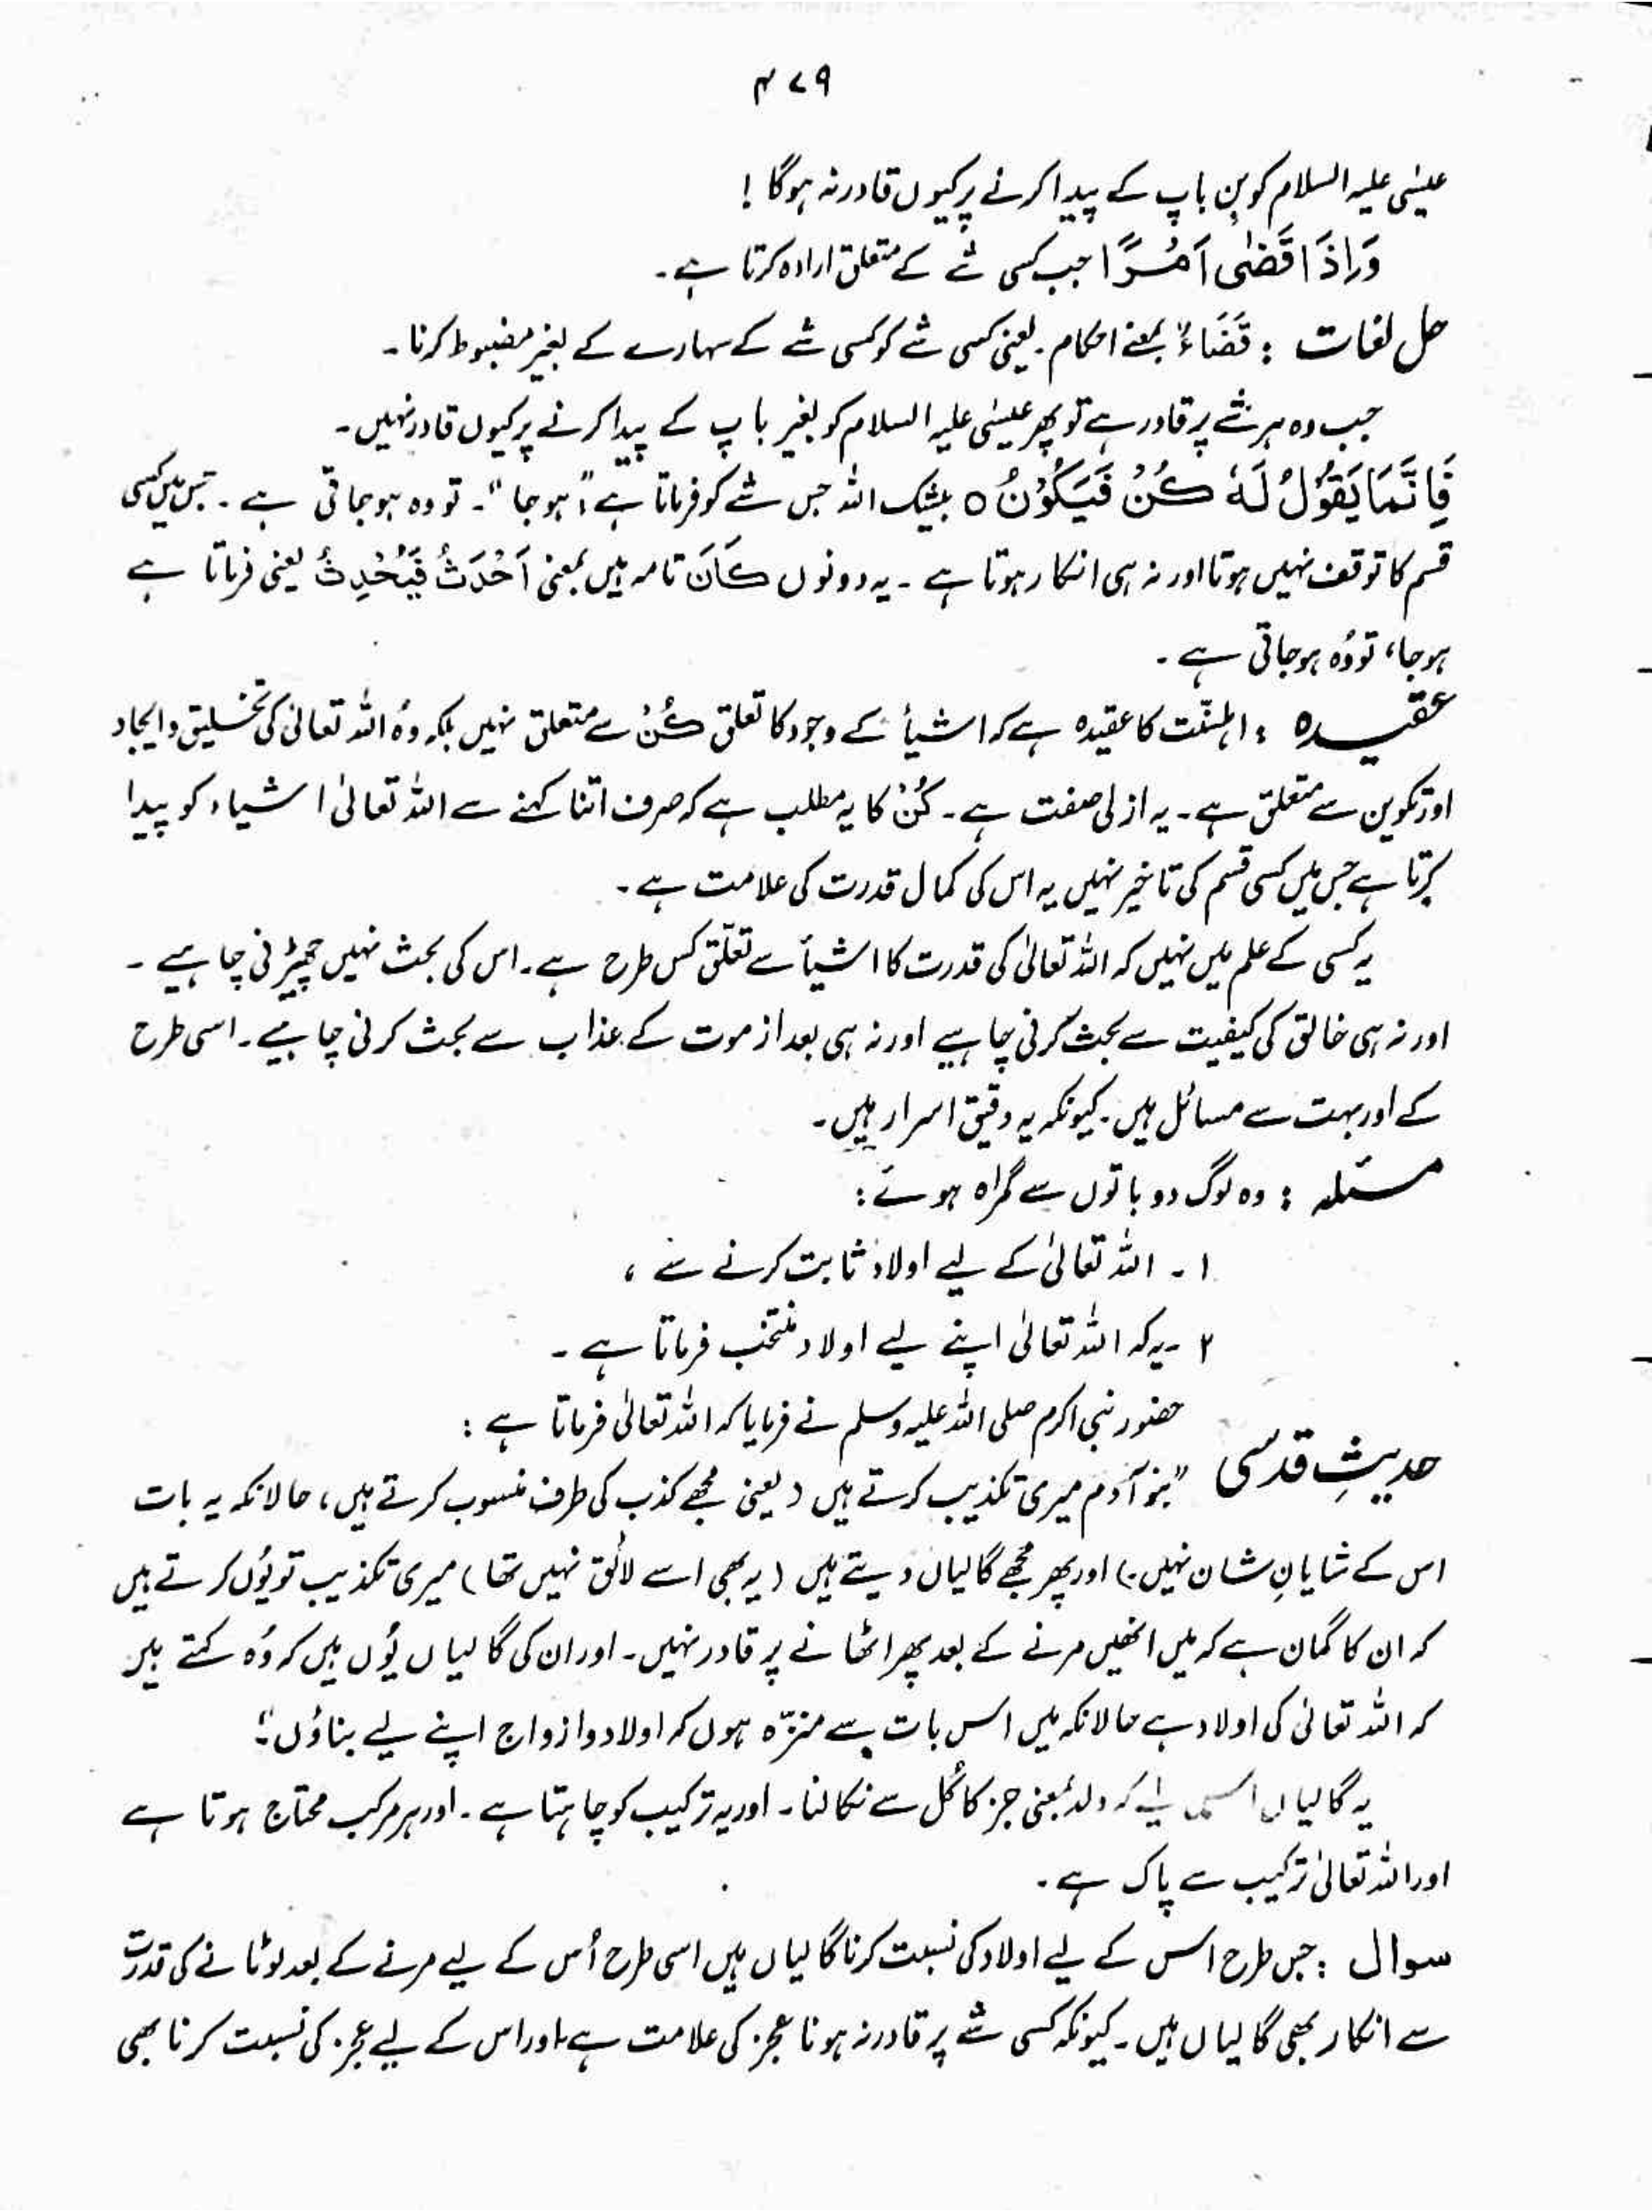 ۴۷۹
عیسٰی علیہ السلام کو بِن باپ کے پیدا کرنے پر کیوں قادر نہ ہوگا !
وَاِذَا قَضٰٓی اَمْرًا جب کسی شے کے متعلق ارادہ کرتا ہے۔
حل لغات : قَضَاءٌ بمعنے احکام۔ یعنی کسی شے کو کسی شے کے سہارے کے بغیر مضبوط کرنا۔
جب وہ ہر شے پر قادر ہے تو پھر عیسٰی علیہ السلام کو بغیر باپ کے پیدا کرنے پر کیوں قادر نہیں۔
فَاِنَّمَا یَقُوْلُ لَهٗ كُنْ فَیَكُوْنُ ○ بیشک اللہ جس شے کو فرماتا ہے "ہوجا"۔ تو وہ ہوجاتی ہے۔ جس میں کسی
قسم کا توقف نہیں ہوتا اور نہ ہی انکار ہوتا ہے۔ یہ دونوں کَانَ تامہ ہیں بمعنی اَحْدَثُ فَیُحْدِثُ یعنی فرماتا ہے
ہوجا، تو وُہ ہوجاتی ہے۔
عقیدہ : اہلسنّت کا عقیدہ ہے کہ اشیأ کے وجود کا تعلق کُنْ سے متعلق نہیں بلکہ وُہ اللہ تعالیٰ کی تخلیق و ایجاد
اور تکوین سے متعلق ہے۔ یہ ازلی صفت ہے۔ کُنْ کا یہ مطلب ہے کہ صرف اتنا کہنے سے اللہ تعالیٰ اشیاء کو پیدا
کرتا ہے جس میں کسی قسم کی تاخیر نہیں یہ اس کی کمال قدرت کی علامت ہے۔
یہ کسی کے علم میں نہیں کہ اللہ تعالیٰ کی قدرت کا اشیأ سے تعلّق کس طرح ہے۔ اس کی بحث نہیں چھیڑنی چاہیے۔
اور نہ ہی خالق کی کیفیت سے بحث کرنی چاہیے اور نہ ہی بعد از موت کے عذاب سے بحث کرنی چاہیے۔ اسی طرح
کے اور بہت سے مسائل ہیں۔ کیونکہ یہ دقیق اسرار ہیں۔
مسئلہ : وہ لوگ دو باتوں سے گمراہ ہوئے :
۱۔ اللہ تعالیٰ کے لیے اولاد ثابت کرنے سے ،
۲۔ یہ کہ اللہ تعالیٰ اپنے لیے اولاد منتخب فرماتا ہے۔
حضور نبی اکرم صلی اللہ علیہ وسلم نے فرمایا کہ اللہ تعالیٰ فرماتا ہے :
حدیثِ قدسی "بنو آدم میری تکذیب کرتے ہیں (یعنی مجھے کذب کی طرف منسوب کرتے ہیں، حالانکہ یہ بات
اس کے شایانِ شان نہیں۔) اور پھر مجھے گالیاں دیتے ہیں (یہ بھی اسے لائق نہیں تھا) میری تکذیب تو یُوں کرتے ہیں
کہ ان کا گمان ہے کہ میں انھیں مرنے کے بعد پھر اٹھانے پر قادر نہیں۔ اور ان کی گالیاں یُوں ہیں کہ وُہ کہتے ہیں
کہ اللہ تعالیٰ کی اولاد ہے حالانکہ میں اس بات سے منزّہ ہوں کہ اولاد و ازواج اپنے لیے بناؤں"۔
یہ گالیاں اس لیے کہ ولد بمعنی جز کا کُل سے نکالنا۔ اور یہ ترکیب کو چاہتا ہے۔ اور ہر مرکب محتاج ہوتا ہے
اور اللہ تعالیٰ ترکیب سے پاک ہے۔
سوال : جس طرح اس کے لیے اولاد کی نسبت کرنا گالیاں ہیں اسی طرح اُس کے لیے مرنے کے بعد لوٹانے کی قدرت
سے انکار بھی گالیاں ہیں۔ کیونکہ کسی شے پر قادر نہ ہونا عجز کی علامت ہے اور اس کے لیے عجز کی نسبت کرنا بھی